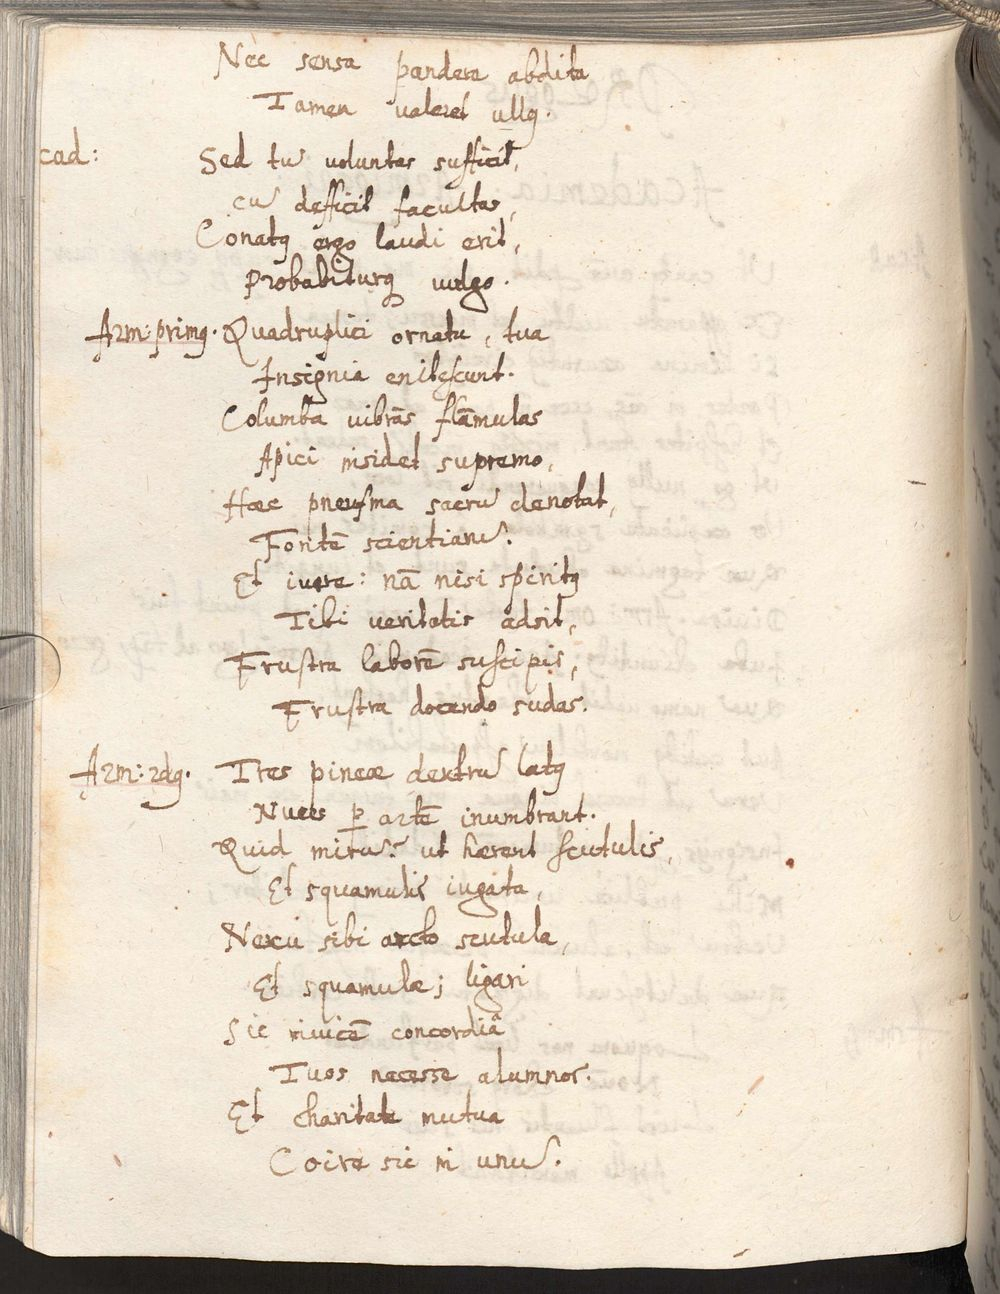 Nec sensa pandere abdita
Tamen valeret ullq.
cad: Sed tũ voluntas sufficit,
cũ defficit facultas,
Conatq ergo laudi erit,
probabiturq vulgo.
Arm: primq. Quadruplici ornatu, tua
Insignia enitescunt.
Columba vibrãs flãmulas
Apici insidet supremo,
Haec pneusma sacrũ denotat,
Fontẽ scientiarũ.
Et iure: nã nisi spiritq
Tibi veritatis adsit,
Frustra laborẽ suscipis,
Frustra docendo sudas.
Arm: 2dq. Tres pineae dextrũ latq
Nuces p artẽ inumbrant.
Quid mirũ? ut haerent scutulis,
Et squamulis iugata,
Nexu sibi arcto scutula,
Et squamulae; ligari
Sic invicẽ concordiâ
Tuos necesse alumnos.
Et charitate mutua
Coire sic in unũ.